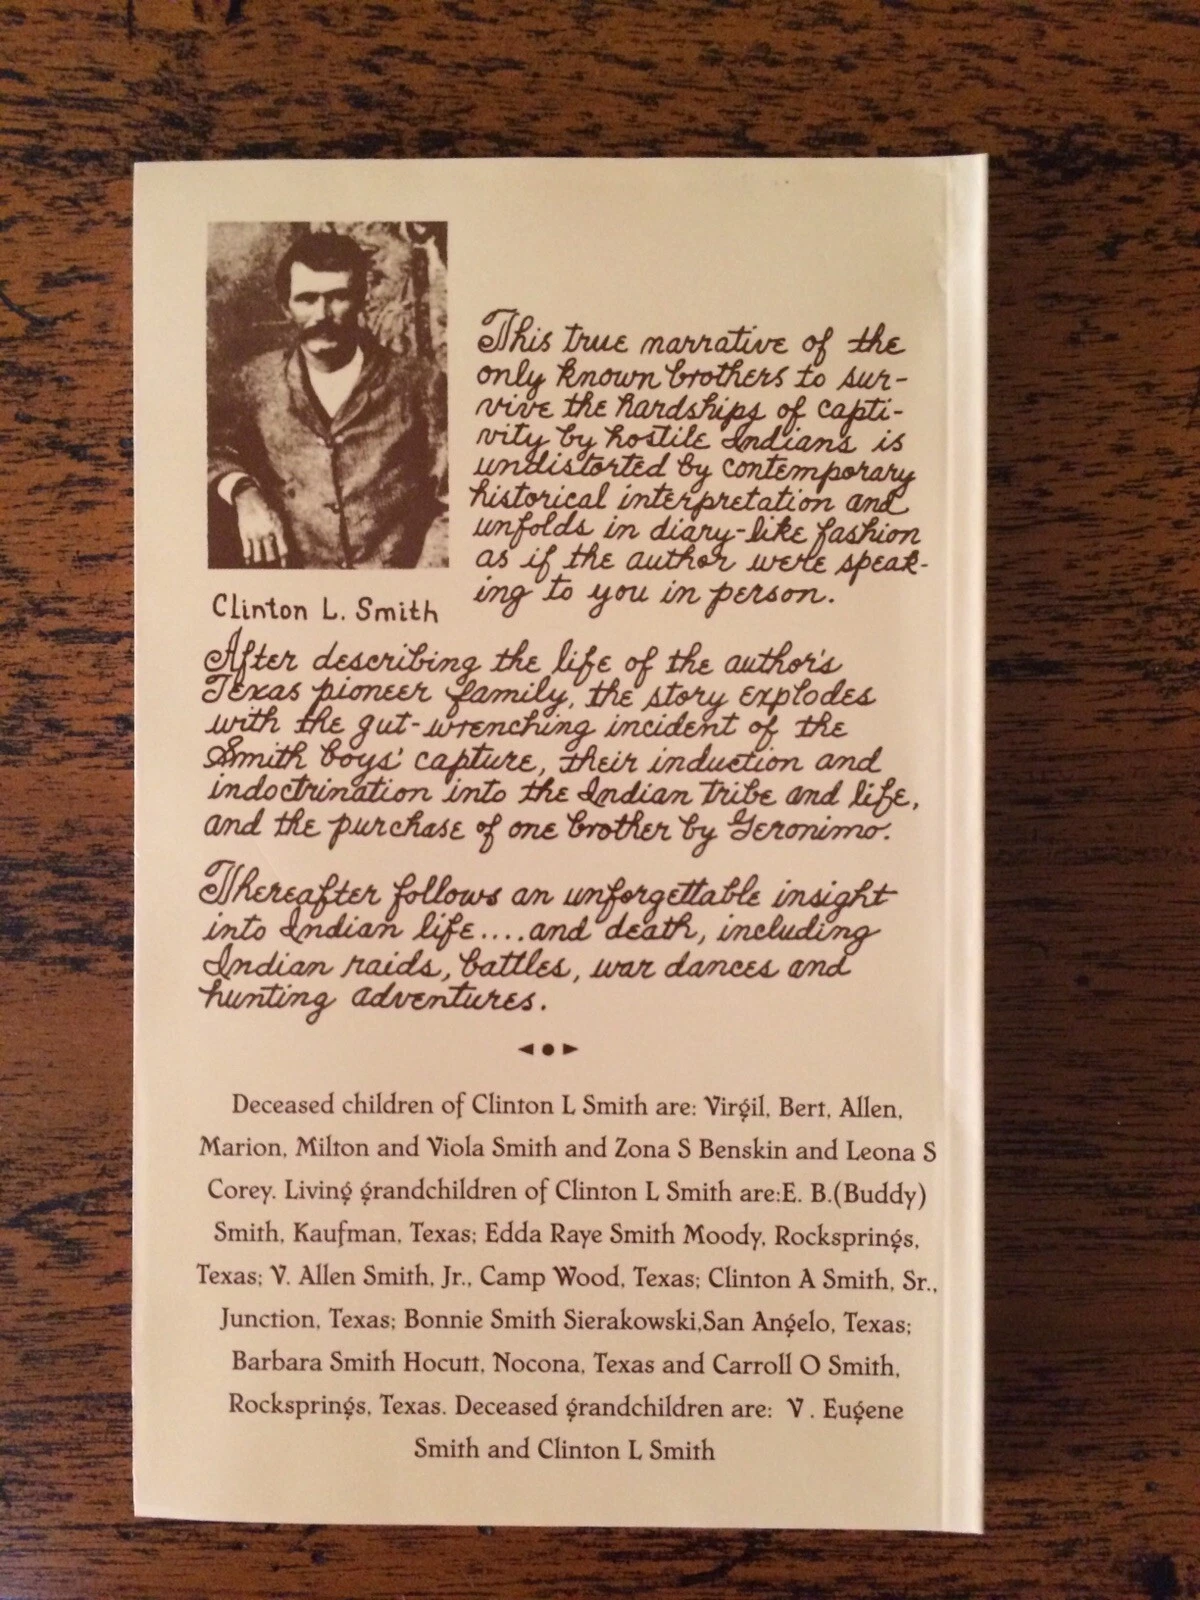 This true narrative of the
only known brothers to sur-
vive the hardships of capti-
vity by hostile Indians is
undistorted by contemporary
historical interpretation and
unfolds in diary-like fashion
as if the author were speak-
ing to you in person.
Clinton L. Smith
After describing the life of the author's
Texas pioneer family, the story explodes
with the gut-wrenching incident of the
Smith boys' capture, their induction and
indoctrination into the Indian tribe and life,
and the purchase of one brother by Geronimo.
Thereafter follows an unforgettable insight
into Indian life....and death, including
Indian raids, battles, war dances and
hunting adventures.
Deceased children of Clinton L Smith are: Virgil, Bert, Allen,
Marion, Milton and Viola Smith and Zona S Benskin and Leona S
Corey. Living grandchildren of Clinton L Smith are:E. B.(Buddy)
Smith, Kaufman, Texas; Edda Raye Smith Moody, Rocksprings,
Texas; V. Allen Smith, Jr., Camp Wood, Texas; Clinton A Smith, Sr.,
Junction, Texas; Bonnie Smith Sierakowski,San Angelo, Texas;
Barbara Smith Hocutt, Nocona, Texas and Carroll O Smith,
Rocksprings, Texas. Deceased grandchildren are: V. Eugene
Smith and Clinton L Smith